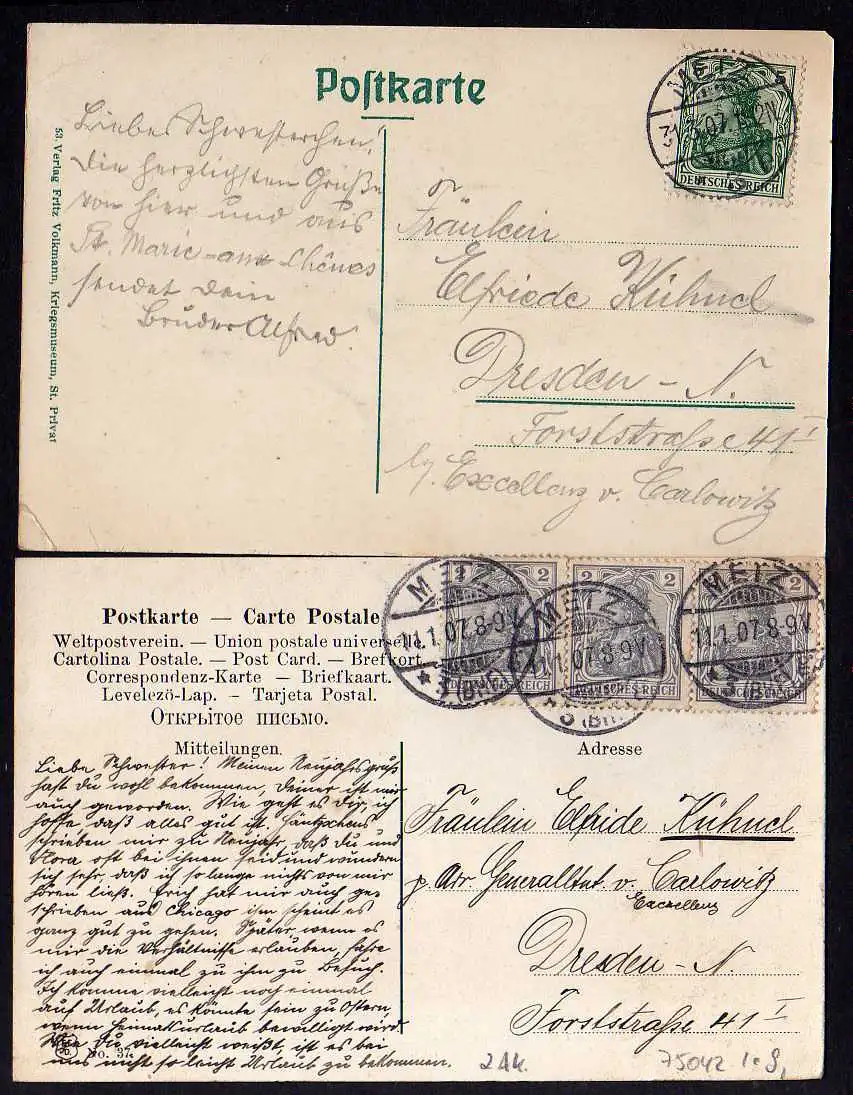 Postkarte
METZ
31.3.07.1-2N
DEUTSCHES REICH
Liebes Schwesterchen!
die herzlichsten Grüße
von hier und aus
St. Marie-aux Chênes
sendet Dein
Bruder Alfred.
53. Verlag Fritz Volkmann, Kriegsmuseum, St. Privat
Fräulein
Elfriede Kühnel
Dresden - N.
Forststraße 41 I
Excellenz v. Carlowitz
2 2 2
METZ METZ METZ
11.1.07.8-9V. 11.1.07.8-9V. 11.1.07.8-9V.
DEUTSCHES REICH DEUTSCHES REICH DEUTSCHES REICH
* 3 (Bhf.)
Postkarte — Carte Postale
Weltpostverein. — Union postale universelle.
Cartolina Postale. — Post Card. — Brefkort.
Correspondenz-Karte — Briefkaart.
Levelezö-Lap. — Tarjeta Postal.
Открытое письмо.
Mitteilungen.
Adresse
Liebe Schwester! Meinen Neujahrsgruß
hast du wohl bekommen, deiner ist mir
auch geworden. Wie geht es Dir, ich
hoffe daß alles gut ist.
schrieben mir zu Neujahr, daß du und
Flora oft bei ihnen seid und wundern
sich sehr, daß ich so lange nichts von mir
hören ließ. Erich hat mir auch ge-
schrieben aus Chicago ihm scheint es
ganz gut zu gehen. Später wenn es
mir die Verhältnisse erlauben, fahre
ich auch einmal zu ihm zu Besuch.
Ich komme vielleicht noch einmal
auf Urlaub, es könnte sein zu Ostern,
wenn Heimatsurlaub bewilligt wird.
Wie Du vielleicht weißt, ist es bei
uns nicht so leicht Urlaub zu bekommen.
No. 37
Fräulein Elfride Kühnel
p. Adr. Generalltnt. v. Carlowitz
Excellenz
Dresden - N.
Forststraße 41 I
2 Ak.
75042